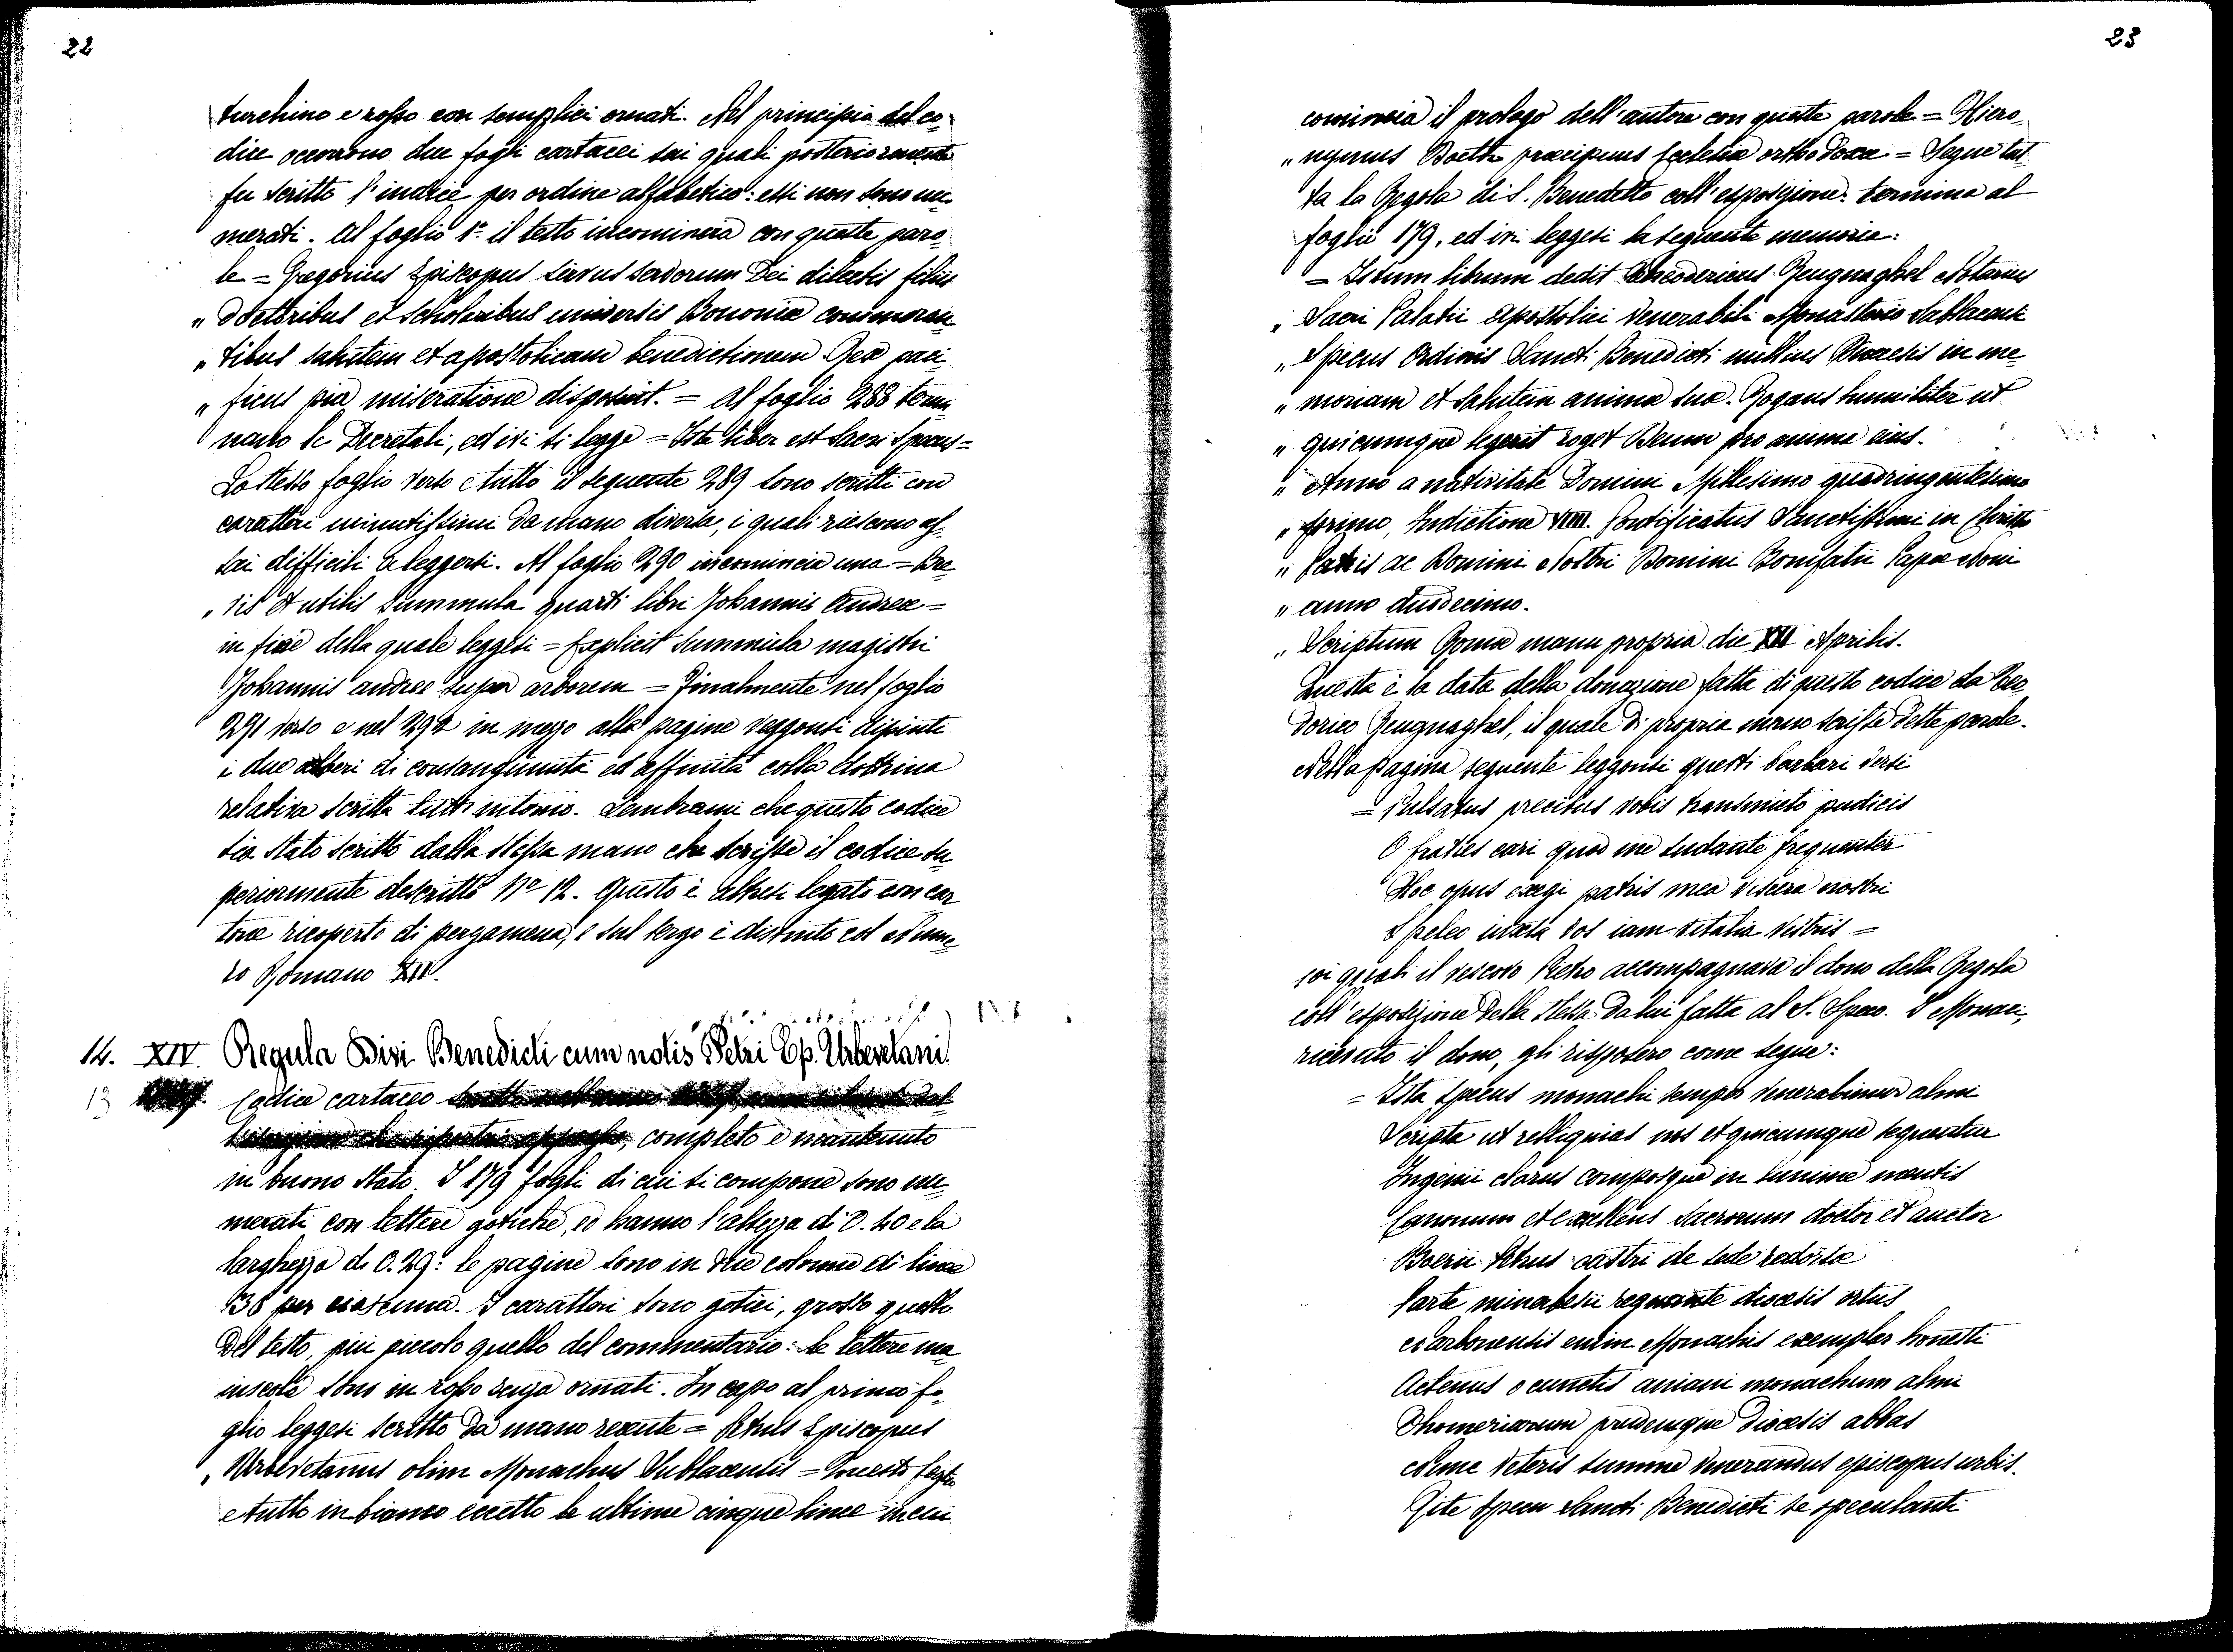 22
turchino e rosso con semplici ornati. Nel principio del co-
dice occorrono due fogli cartacei sui quali posteriormente
fu scritto l'indice per ordine alfabetico: essi non sono nu-
merati. Al foglio 1º il testo incomincia con queste paro-
le = Gregorius Episcopus servus servorum Dei dilectis filiis
„ doctoribus et scholaribus universis Bononiæ commoran-
„ tibus salutem et apostolicam benedictionem Rex paci-
„ ficus pia miseratione disposuit. = Al foglio 288 termi-
nano le Decretali, ed ivi si legge = Iste liber est Sacri Specus =
Lo stesso foglio verso e tutto il seguente 289 sono scritti con
caratteri minutissimi da mano diversa, i quali riescono as-
sai difficili a leggersi. Al foglio 290 incomincia una = Bre-
„ vis et utilis summula quarti libri Johannis Andreæ =
in fine della quale leggesi = Explicit summula magistri
Johannis andree super arborem = Finalmente nel foglio
291 verso e nel 292 in mezzo alle pagine veggonsi dipinti
i due alberi di consanguinuità ed affinità colla dottrina
relativa scritta tutt'intorno. Sembrami che questo codice
sia stato scritto dalla stessa mano che scrisse il codice su-
periormente descritto Nº 12. Questo è altresì legato con car-
tone ricoperto di pergamena, e sul tergo è distinto col Nume-
ro Romano XIV.
14. XIV. Regula Divi Benedicti cum notis Petri Ep. Urbevetani
13 Codice cartaceo
completo e mantenuto
in buono stato. I 179 fogli di cui si compone sono nu-
merati con lettere gotiche, ed hanno l'altezza di 0.40 e la
larghezza di 0.29: le pagine sono in due colonne di linee
38 per ciascuna. I caratteri sono gotici, grosso quello
del testo, più piccolo quello del commentario: le lettere ma-
iuscole sono in rosso senza ornati. In capo al primo fo-
glio leggesi scritto da mano recente = Petrus Episcopus
„ Urbevetanus olim Monachus Sublacensis = Questo foglio
è tutto in bianco eccetto le ultime cinque linee in cui
23
comincia il prologo dell'autore con queste parole = Hiero-
„ nymus Boeth præcipuus Ecclesiæ orthodoxæ = Segue tut-
ta la Regola di S. Benedetto coll'esposizione: termina al
foglio 179, ed ivi leggesi la seguente memoria:
= Istum librum dedit Theodericus Reugnaghel Notarius
„ Sacri Palatii Apostolici Venerabili Monasterio Sublacensi
„ Specus Ordinis Sancti Benedicti nullius Diocesis in me-
„ moriam et salutem animæ suæ. Rogans humiliter ut
„ quicumque legerit roget Deum pro anima eius.
„ Anno a nativitate Domini Millesimo quadringentesimo
„ primo, Indictione VIIII. Pontificatus Sanctissimi in Christo
„ Patris ac Domini Nostri Domini Bonifatii Papæ Noni
„ anno duodecimo.
„ Scriptum Romæ manu propria die XII Aprilis.
Questa è la data della donazione fatta di questo codice da Teo-
dorico Reugnaghel, il quale di propria mano scrisse dette parole.
Nella pagina seguente leggonsi questi barbari versi
= Pulsatus precibus vobis transmicto pudicis
O fratres cari quod me sudante frequenter
Hoc opus exegi patris mea viscera nostri
Speleo iuxta vos iam vitalia vestris =
coi quali il vescovo Pietro accompagnava il dono della Regola
coll'esposizione della stessa da lui fatta al S. Speco. I Monaci,
ricevuto il dono, gli risposero come segue:
= Ista specus monachi semper venerabimur almi
Scripta ut relliquias nos et quicumque sequentur
Ingenii clarus composque in lumine mentis
Canonum et excellens Sacrorum doctor et auctor
Boerii Petrus castri de sede redorte
Parte minerbesii sequente diocesis ortus
Narbonensis enim Monachus exemplar honesti
Actenus o cunctis aniani monachum almi
Thomeriarum prudensque diocesis abbas
Nunc Veteris summe venerandus episcopus urbis.
Rite specu Sancti Benedicti te speculanti